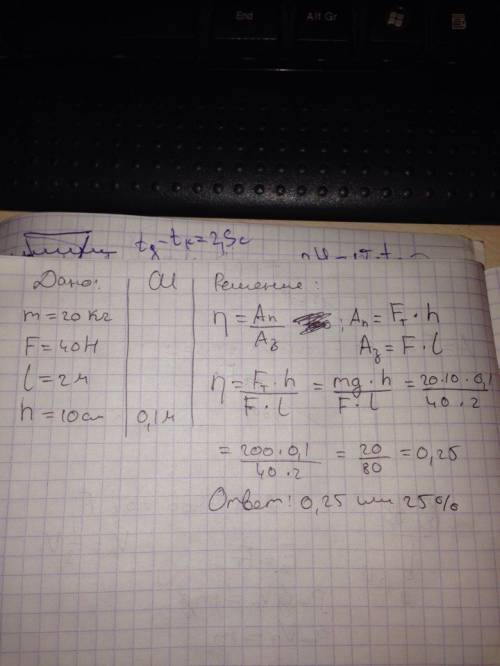 End
Alt Gr
t_д - t_к = 2,5с
Дано:
СИ
Решение:
m = 20 кг
F = 40 Н
l = 2 м
h = 10 см
0,1 м
η = Aп / Aз ; Aп = Fт · h
Aз = F · l
η = Fт · h / F · l = mg · h / F · l = 20 · 10 · 0,1 / 40 · 2
= 200 · 0,1 / 40 · 2 = 20 / 80 = 0,25
Ответ: 0,25 или 25%